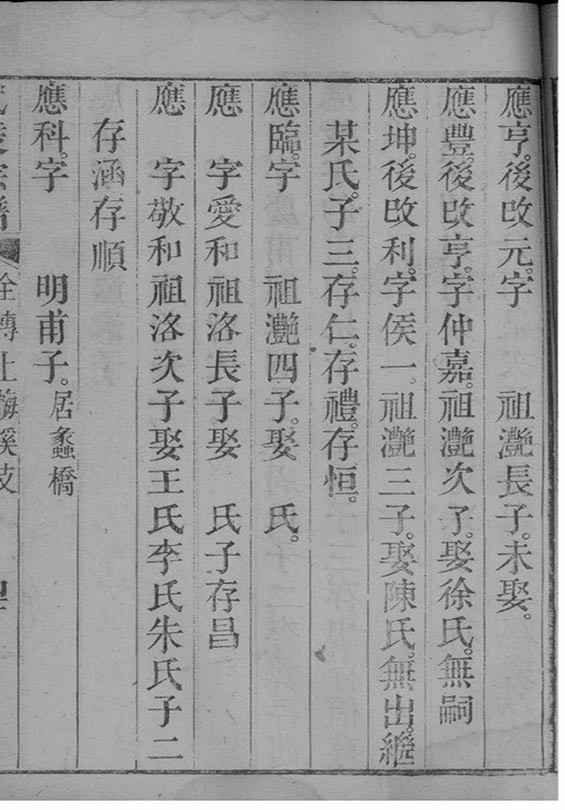 應亨。後改元。字　祖灔長子。未娶。
應豐。後改亨。字仲嘉。祖灔次子。娶徐氏。無嗣
應坤。後改利。字侯一。祖灔三子。娶陳氏。無出。繼
某氏。子三。存仁。存禮。存恒。
應臨。字　祖灔四子。娶　氏。
應　字愛和祖洛長子娶　氏子存昌
應　字敬和祖洛次子娶王氏李氏朱氏子二
存涵存順
應科。字　明甫子。居蠡橋